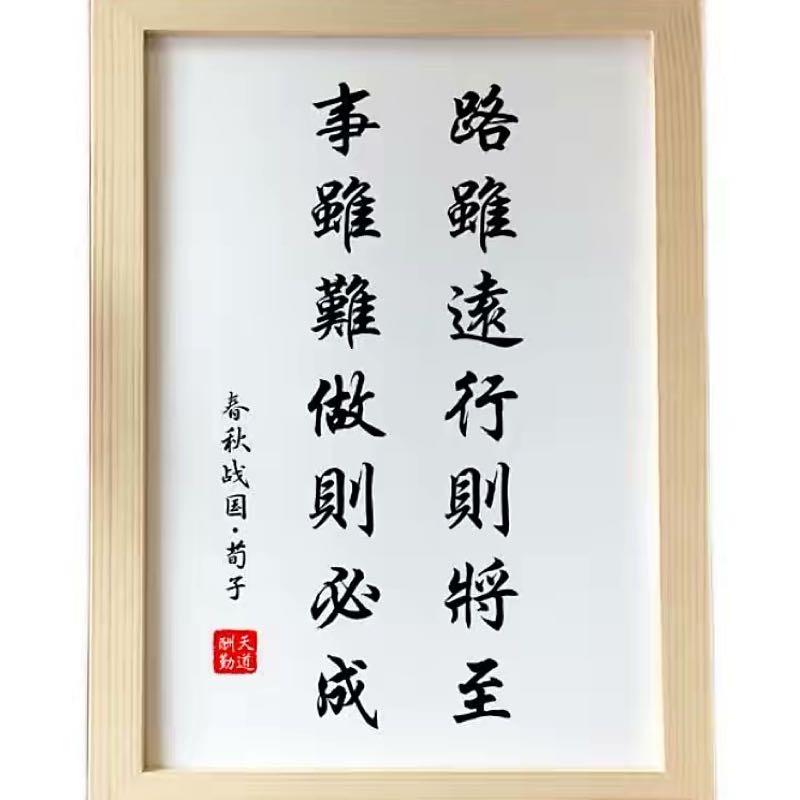 路雖遠行則將至
事雖難做則必成
春秋战国·荀子
天道
酬勤